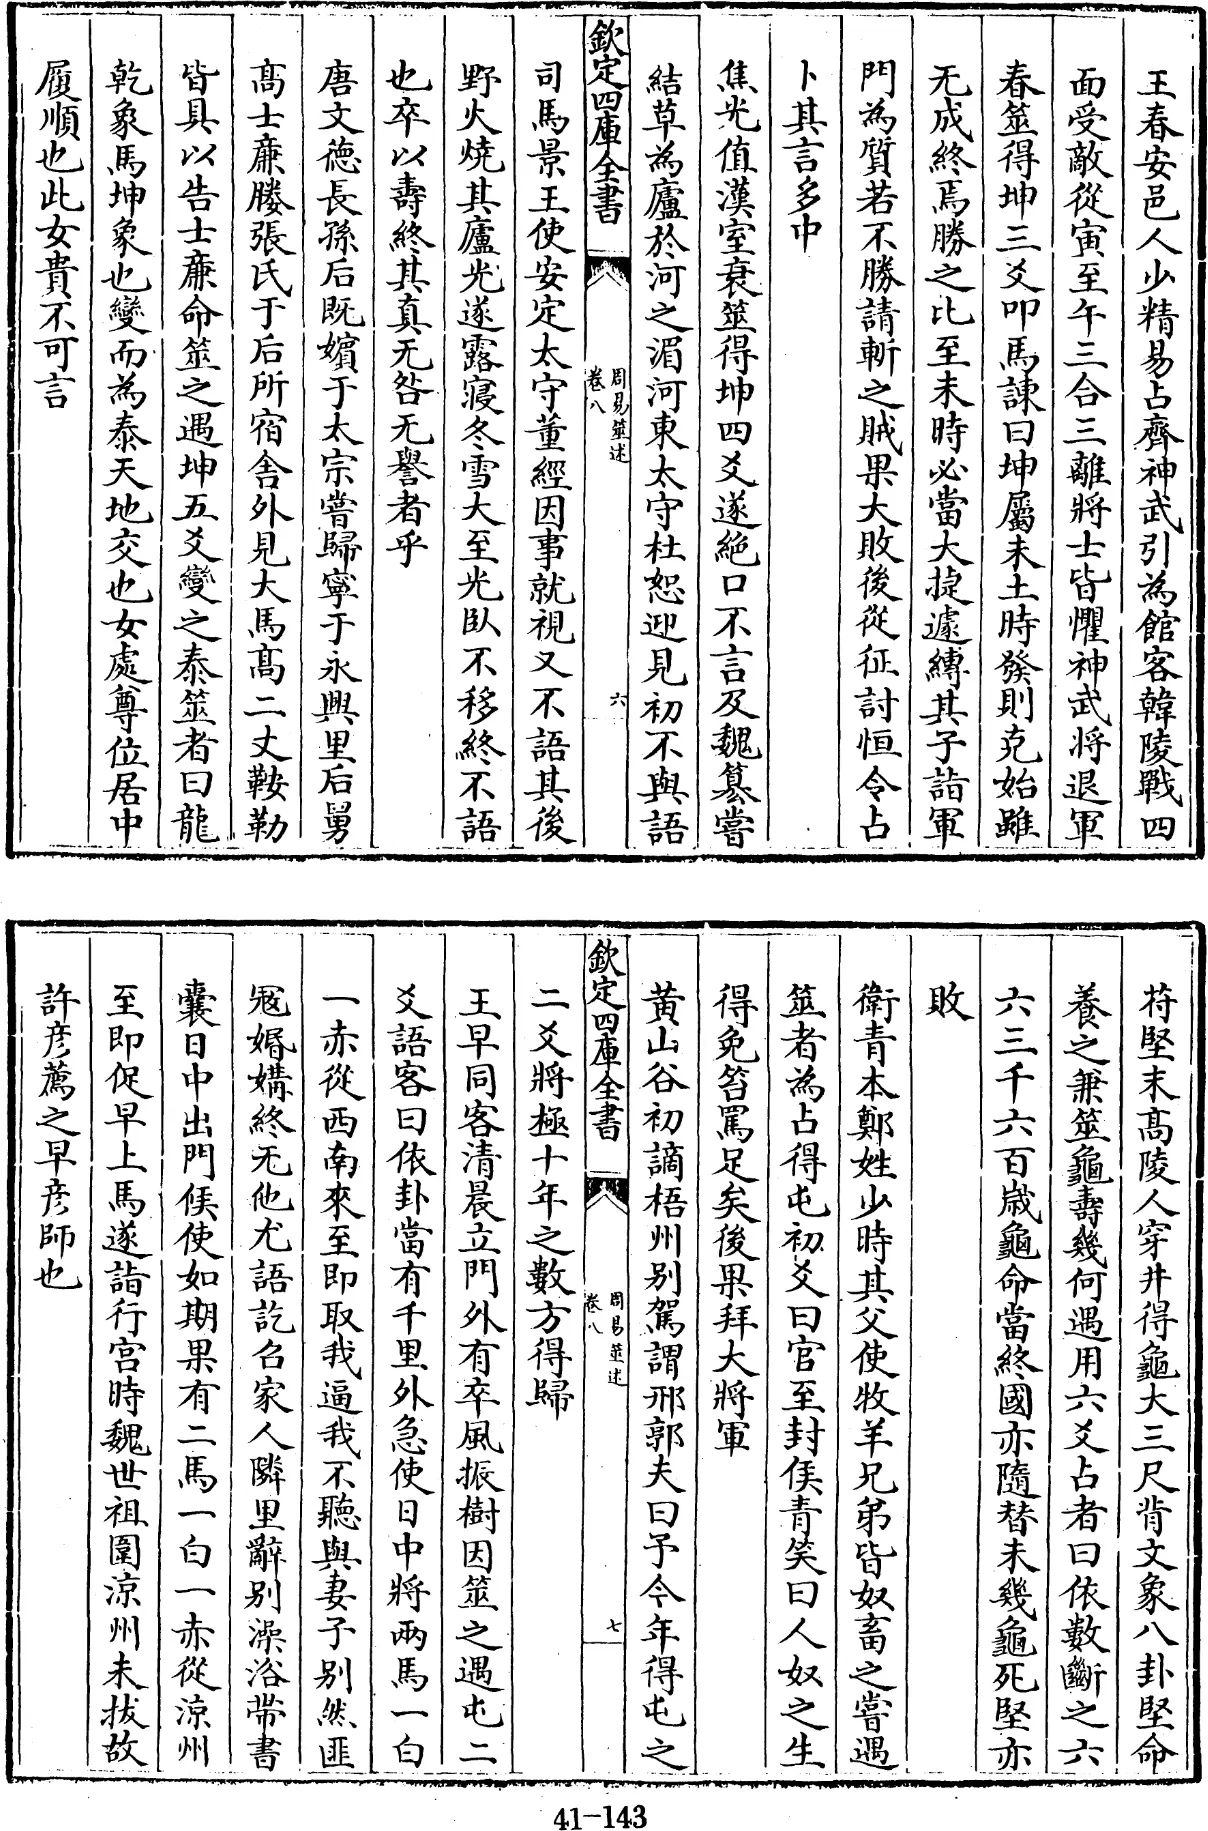 王春安邑人少精易占齊神武引為館客韓陵戰四
面受敵從寅至午三合三離將士皆懼神武將退軍
春筮得坤三爻叩馬諌曰坤屬未土時發則克始雖
无成終焉勝之比至未時必當大捷遽縛其子詣軍
門為質若不勝請斬之賊果大敗後從征討恒令占
卜其言多中
焦光值漢室衰筮得坤四爻遂絶口不言及魏篡嘗
結草為廬於河之湄河東太守杜恕迎見初不與語
欽定四庫全書
周易筮述
卷八
六
司馬景王使安定太守董經因事就視又不語其後
野火燒其廬光遂露寢冬雪大至光臥不移終不語
也卒以壽終其真无咎无譽者乎
唐文德長孫后既嬪于太宗嘗歸寧于永興里后舅
髙士亷媵張氏于后所宿舍外見大馬髙二丈鞍勒
皆具以告士亷命筮之遇坤五爻變之泰筮者曰龍
乾象馬坤象也變而為泰天地交也女處尊位居中
履順也此女貴不可言
苻堅末髙陵人穿井得龜大三尺背文象八卦堅命
養之兼筮龜壽幾何遇用六爻占者曰依數斷之六
六三千六百歲龜命當終國亦隨替未幾龜死堅亦
敗
衛青本鄭姓少時其父使牧羊兄弟皆奴畜之嘗遇
筮者為占得屯初爻曰官至封侯青笑曰人奴之生
得免笞罵足矣後果拜大將軍
黄山谷初謫梧州别駕謂邢郭夫曰予今年得屯之
欽定四庫全書
周易筮述
卷八
七
二爻將極十年之數方得歸
王早同客清晨立門外有卒風振樹因筮之遇屯二
爻語客曰依卦當有千里外急使日中將兩馬一白
一赤從西南來至即取我逼我不聽與妻子别然匪
冦婚媾終无他尤語訖召家人隣里辭别澡浴帶書
囊日中出門候使如期果有二馬一白一赤從涼州
至即促早上馬遂詣行宫時魏世祖圍涼州未拔故
許彦薦之早彦師也
41-143